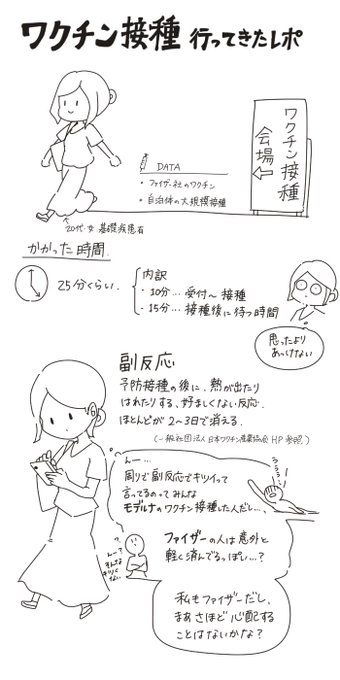 ワクチン接種 行ってきたレポ
ワクチン接種
会場
←
DATA
・ファイザー社のワクチン
・自治体の大規模接種
20代・女 基礎疾患有
かかった時間
25分くらい.
内訳
・10分…受付〜接種
・15分…接種後に待つ時間
思ったより
あっけない
副反応
予防接種の後に、熱が出たり
はれたりする、好ましくない反応.
ほとんどが2〜3日で消える.
(一般社団法人 日本ワクチン産業協会 HP 参照)
んー…
周りで副反応でキツイって
言ってるのって みんな
モデルナのワクチン接種した人だし…、
ファイザーの人は意外と
軽く済んでるっぽい…?
私もファイザーだし、
まあ さほど心配する
ことはないかな?